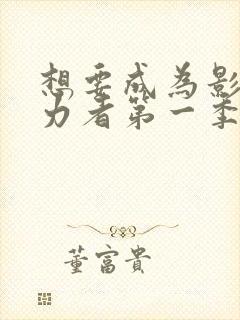 想要成为影
力者第一季
董富贵